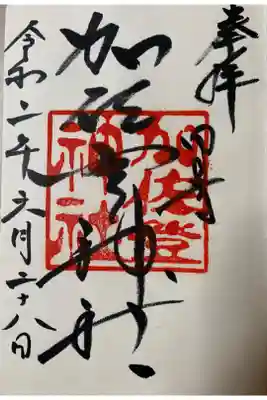 奉拝
加佐登神社
令和二年六月二十八日
加佐登
神社